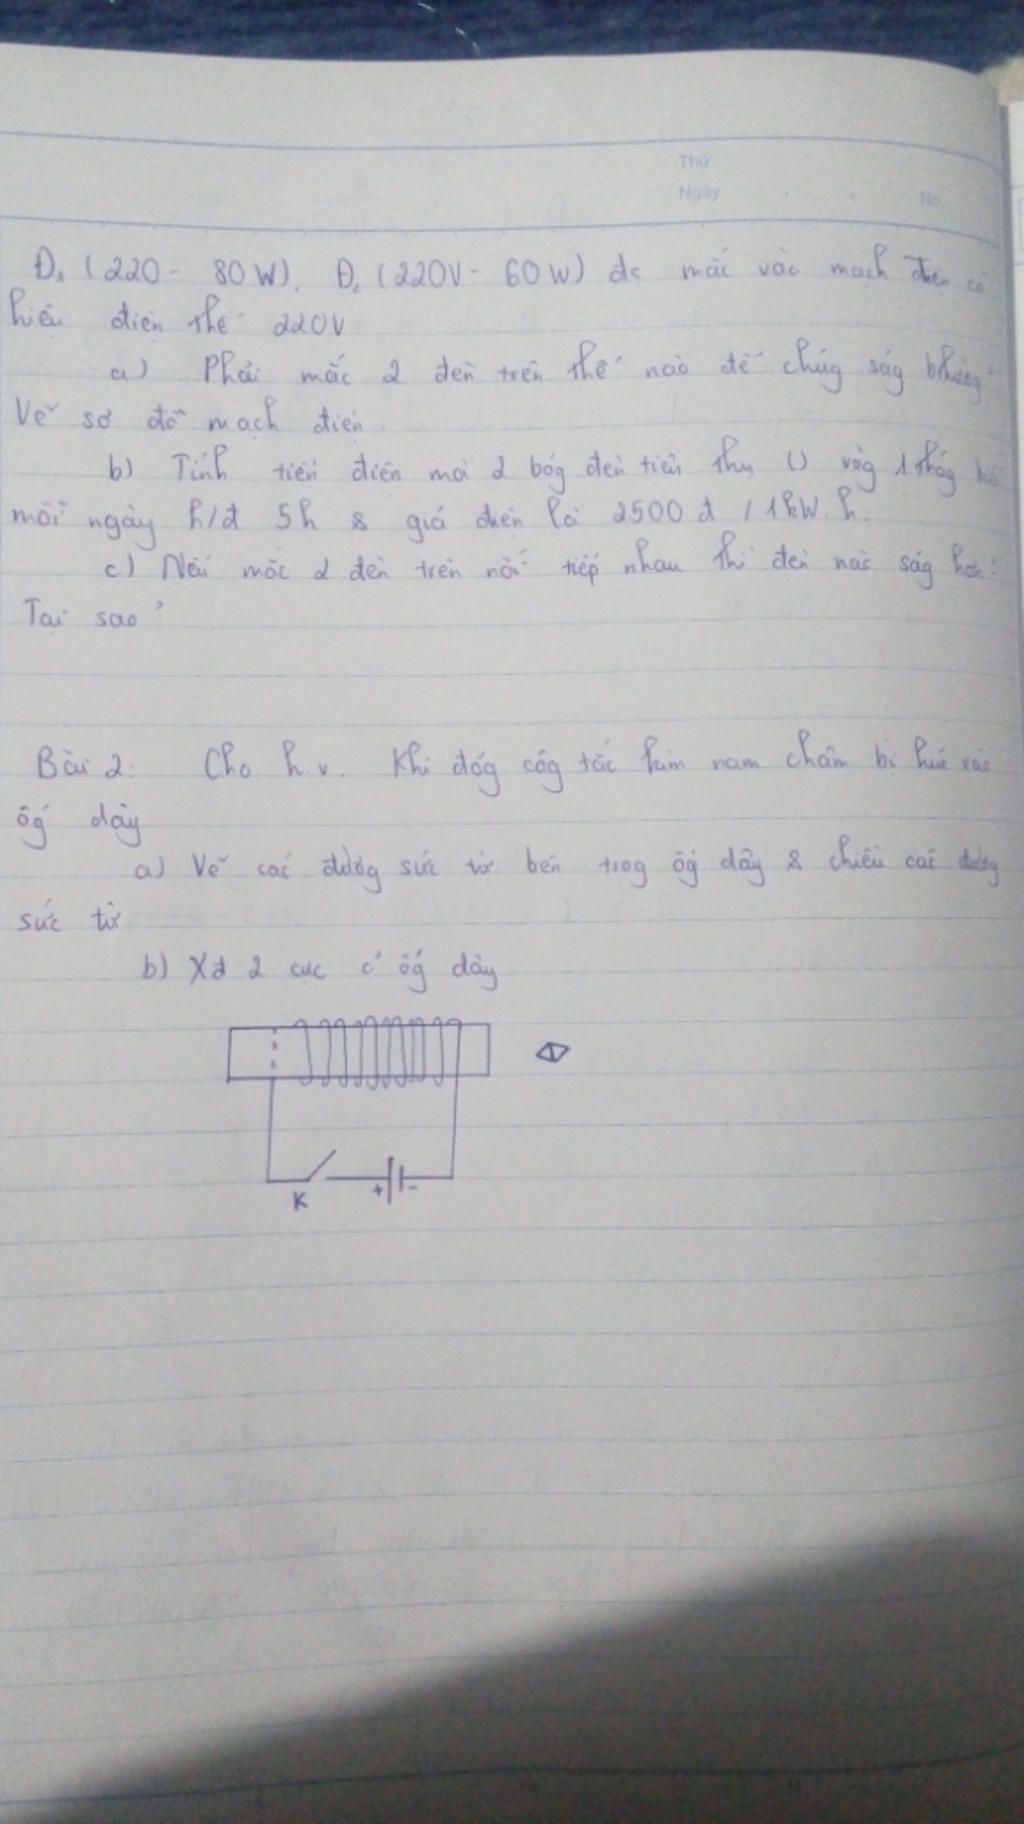 Thứ
Ngày No.
Đ₁ (220 - 80W), Đ₂ (220V - 60W) đc mắc vào mạch điện có
hiệu điện thế 220V
a) Phải mắc 2 đèn trên thế nào để chúg ság bthường
Vẽ sơ đồ mạch điện.
b) Tính tiền điện mà 2 bóg đèn tiêu thụ () vòg 1 thág
mỗi ngày h/đ 5h & giá điện là 2500 đ / 1kW.h.
c) Nếu mắc 2 đèn trên nối tiếp nhau thì đèn nào ság hơn?
Tại sao?
Bài 2: Cho h.v. Khi đóg côg tắc kim nam châm bị hút vào
ốg dây
a) Vẽ các đườg sức từ bên trog ốg dây & chiều các đườg
sức từ
b) Xđ 2 cực c' ốg dây
K + -